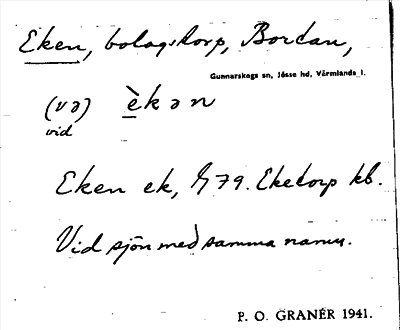 Eken, bolagstorp, Bordan,
Gunnarskogs sn, Jösse hd, Värmlands l.
(və) è̱kən
vid
Eken ek, 79. Eketorp kb.
Vid sjön med samma namn.
P. O. GRANÉR 1941.